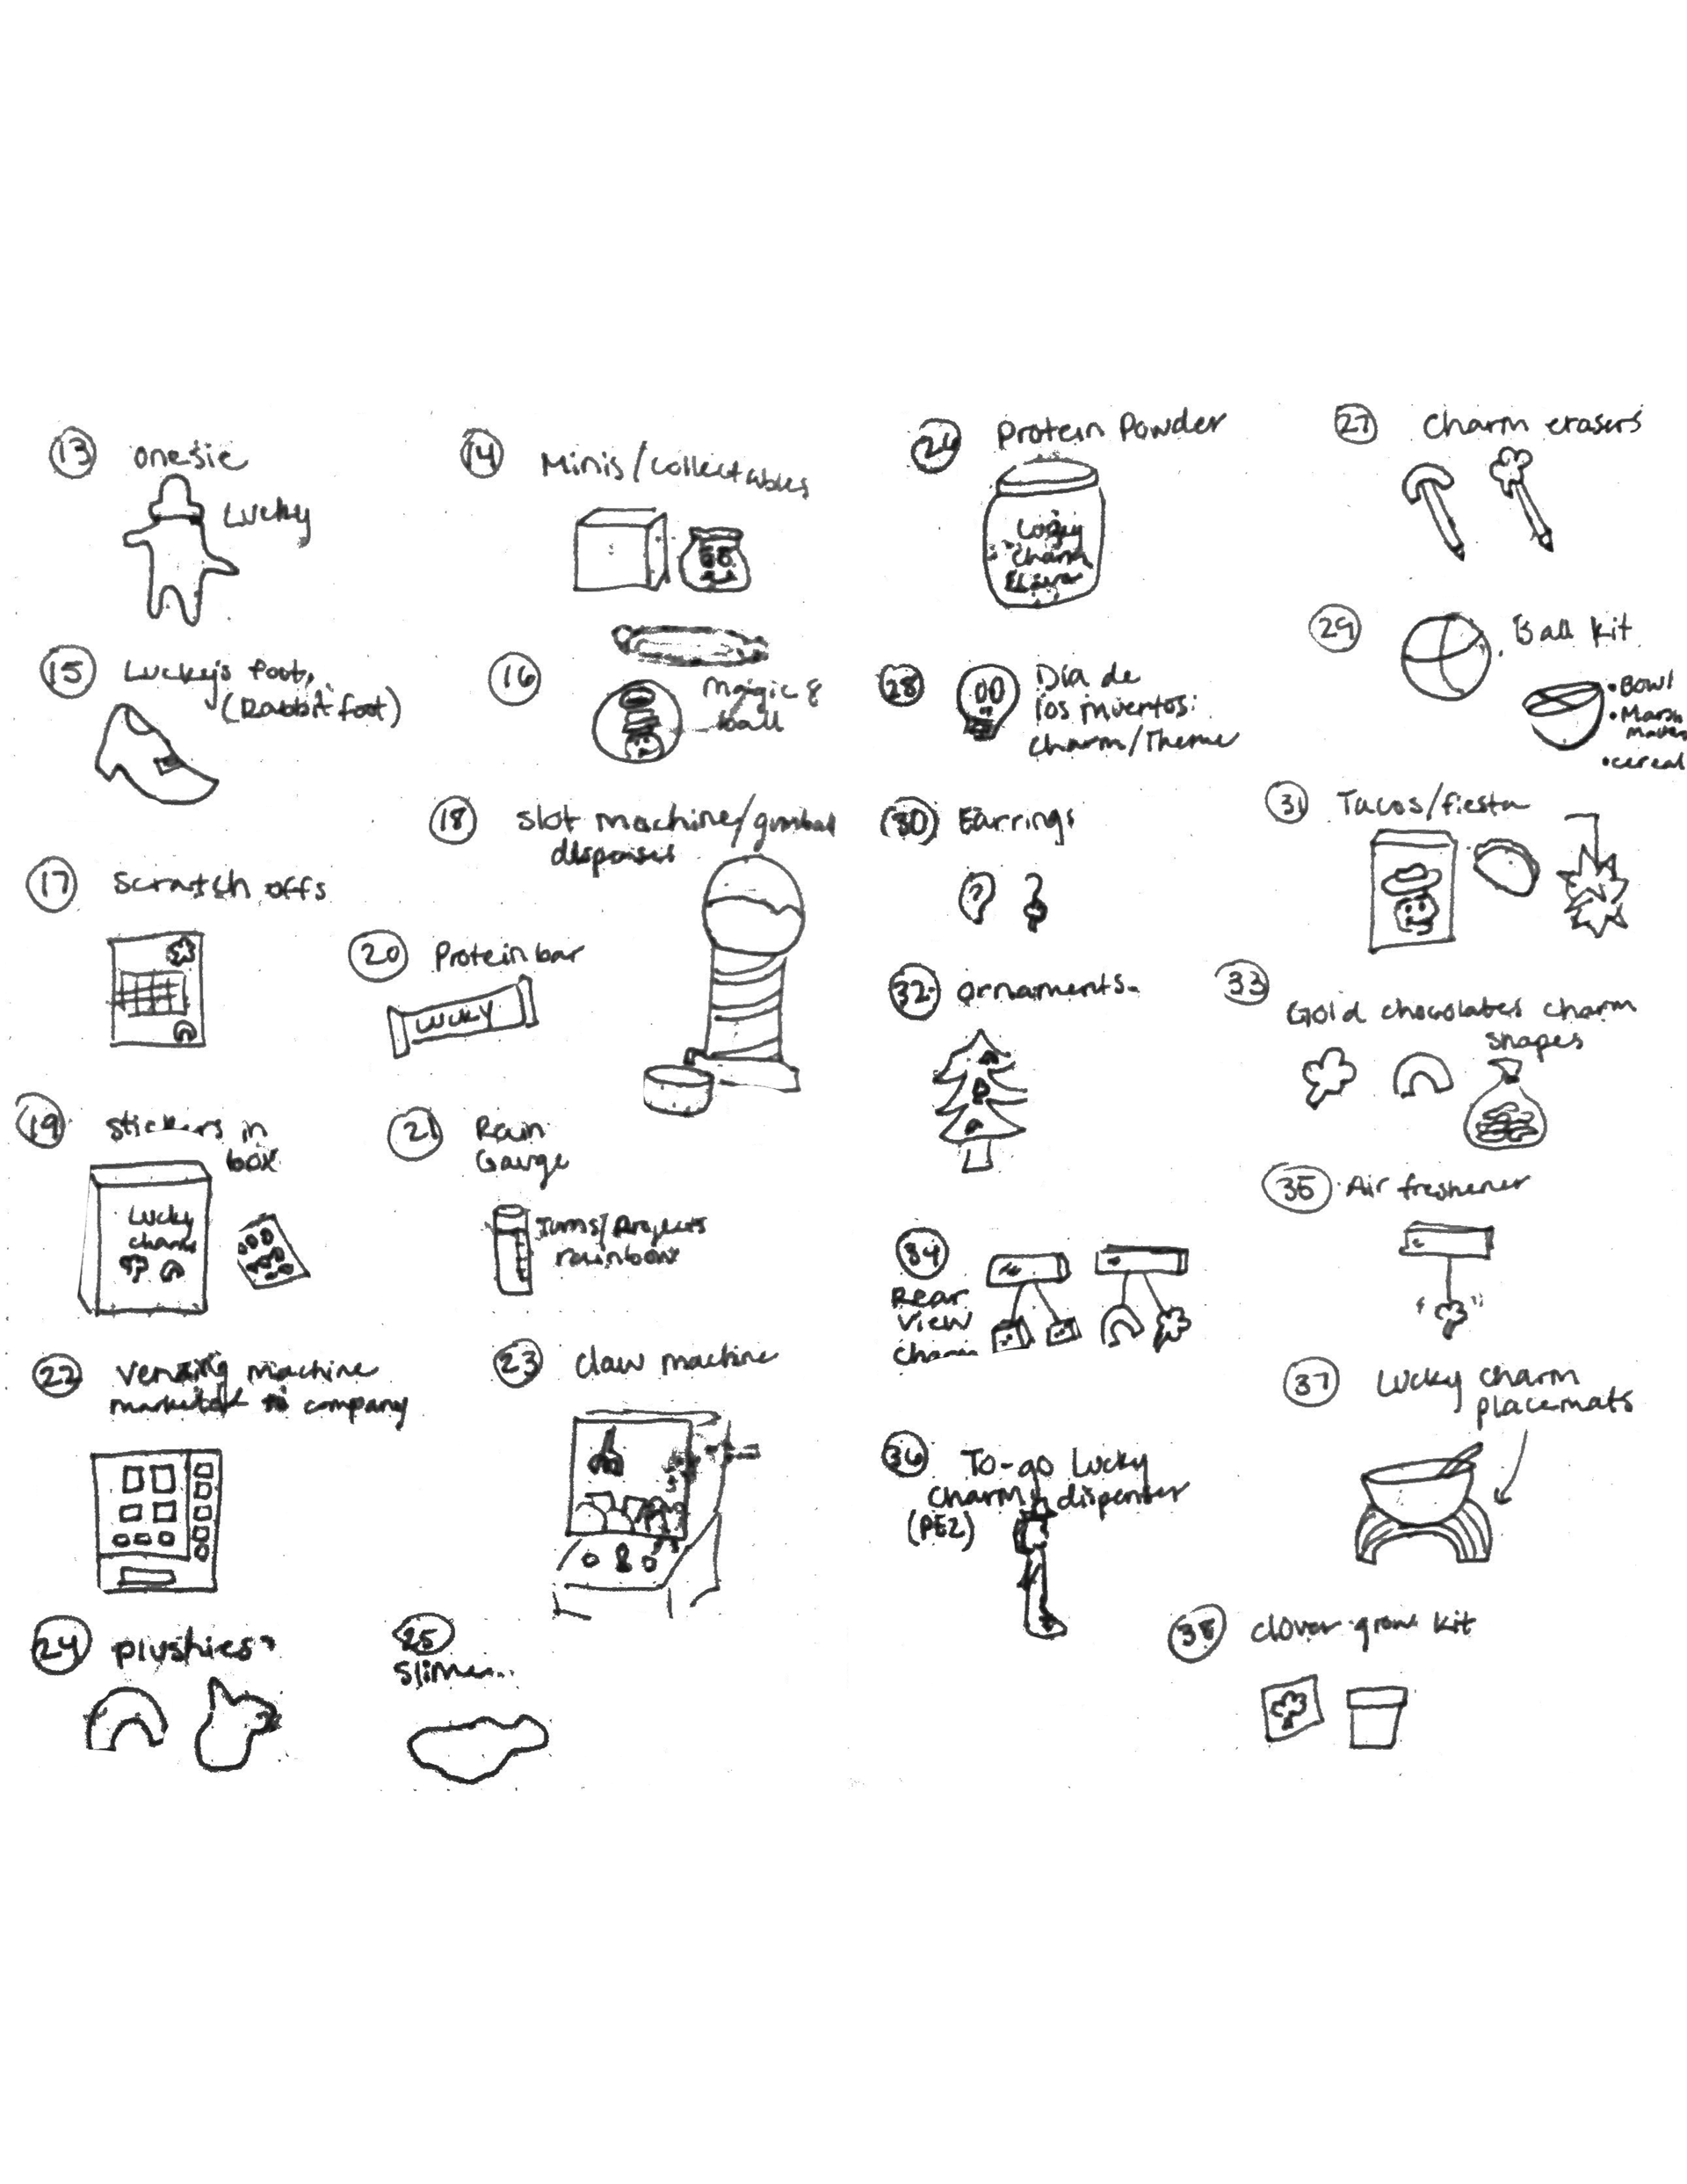 13 onesie
Lucky
14 Minis/collectables
15 Lucky's foot,
(Rabbit foot)
16 magic 8
ball
17 scratch offs
18 slot machine/gumball
20 Protein bar
LUCKY
19 stickers in
box
Lucky
charms
21 Rain
Gauge
rainbow
22 vending machine
company
23 claw machine
24 plushies
25
slime
26 Protein Powder
Lucky
Charm
27 charm erasers
28 Día de
los muertos:
charm/Theme
29 Ball kit
• Bowl
• Marsh
• cereal
30 Earrings
31 Tacos/fiesta
32 ornaments
33
Gold chocolates charm
shapes
34
Rear
view
charm
35 Air freshener
36 To-go Lucky
charm dispenser
(PEZ)
37 Lucky charm
placemats
38 clover grow kit